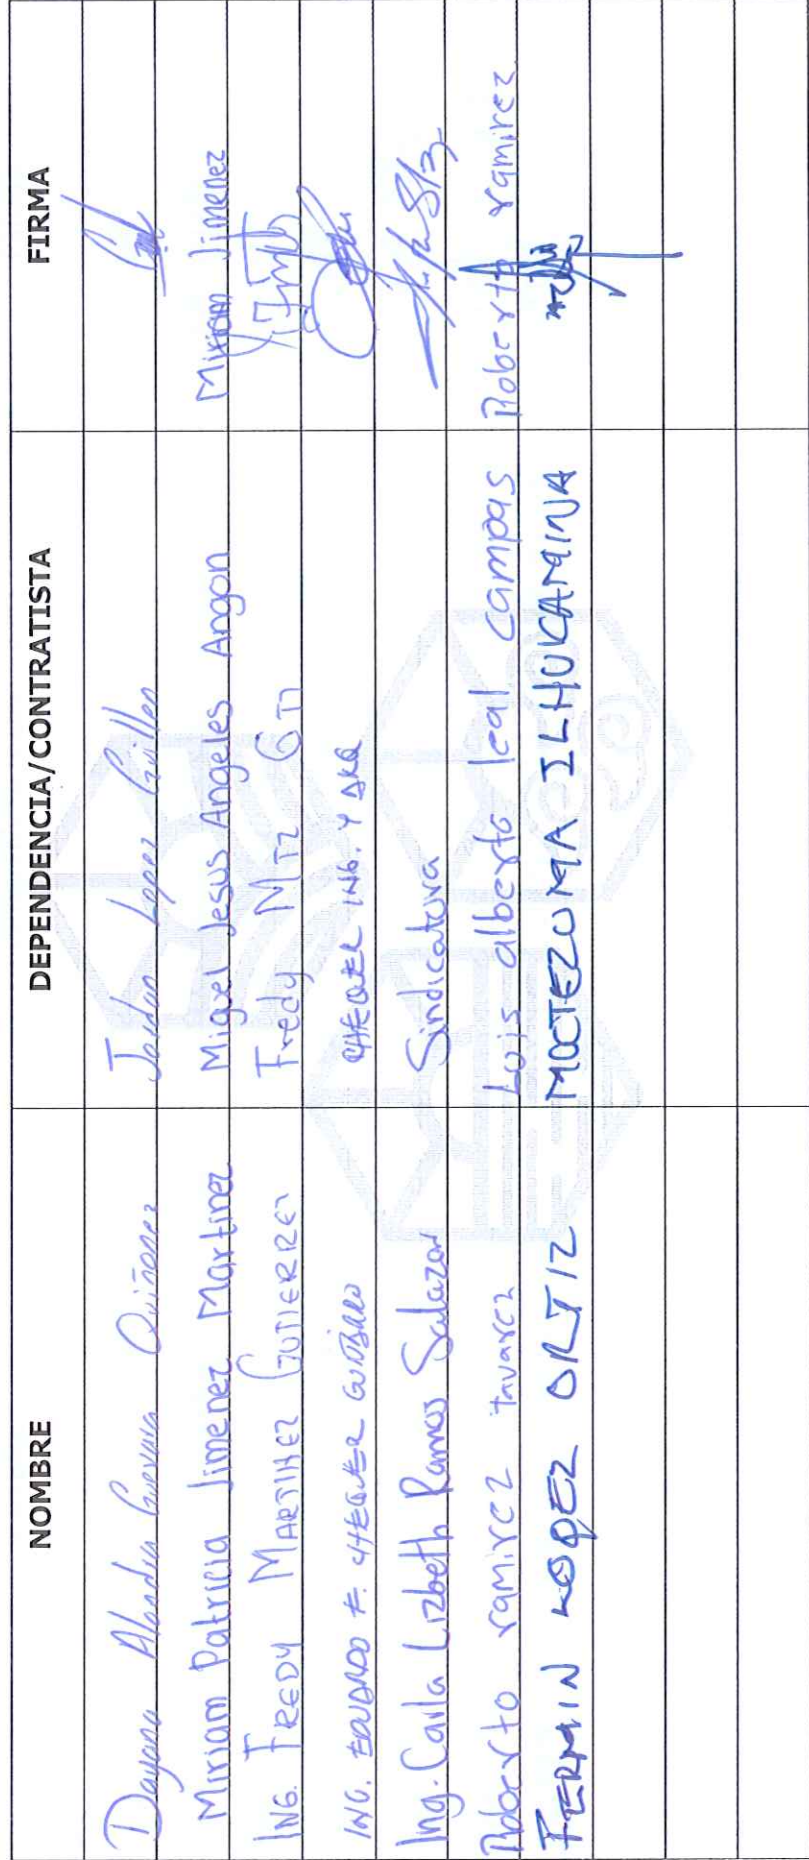 NOMBRE DEPENDENCIA/CONTRATISTA FIRMA
Dayana Guevara Quiñonez Jordan Lopez Guillen
Miriam Patricia Jimenez Martinez Miguel Jesus Angeles Angon Miriam Jimenez
ING. FREDY MARTINEZ GUTIERREZ Fredy MTZ GTZ
ING. EDUARDO F. CHEQUER CHEQUER ING. Y ARQ
Ing. Carla Lizbeth Ramos Salazar Sindicatura
Roberto ramirez tavarez Luis alberto leal campas Roberto ramirez
FERMIN LOPEZ ORTIZ MOCTEZUMA ILHUICAMINA